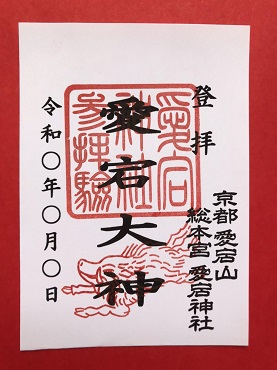 登拝
京都 愛宕山
総本宮 愛宕神社
愛宕大神
愛宕
神社
参拝驗
令和〇年〇月〇日